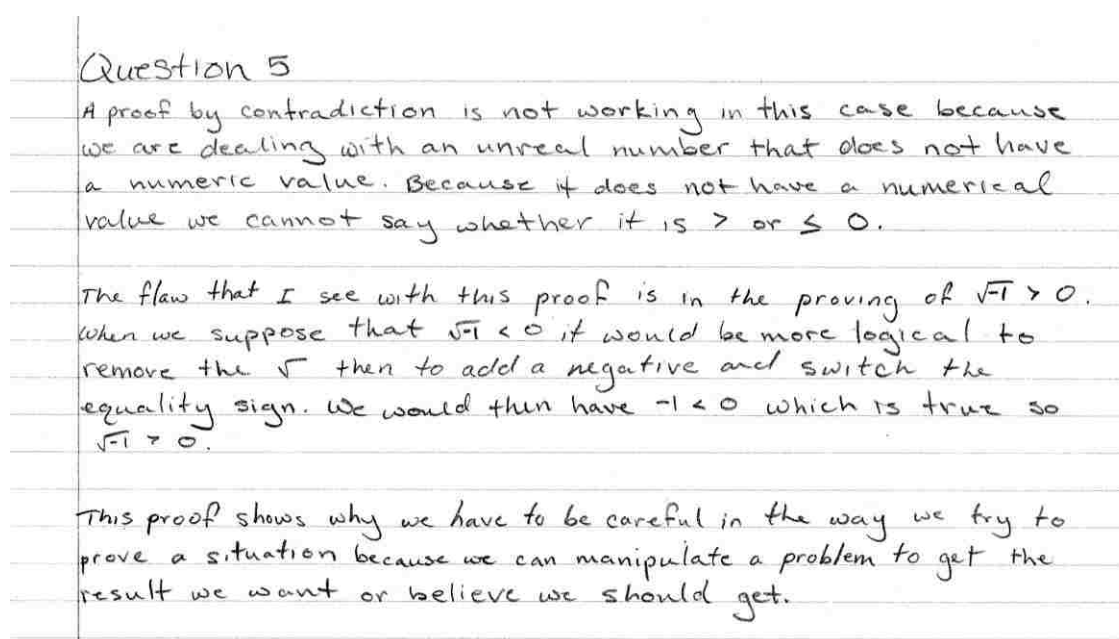 Question 5
A proof by contradiction is not working in this case because
we are dealing with an unreal number that does not have
a numeric value. Because it does not have a numerical
value we cannot say whether it is > or ≤ 0.
The flaw that I see with this proof is in the proving of √-1 > 0.
When we suppose that √-1 < 0 it would be more logical to
remove the √ then to add a negative and switch the
equality sign. We would then have -1 < 0 which is true so
√-1 > 0.
This proof shows why we have to be careful in the way we try to
prove a situation because we can manipulate a problem to get the
result we want or believe we should get.